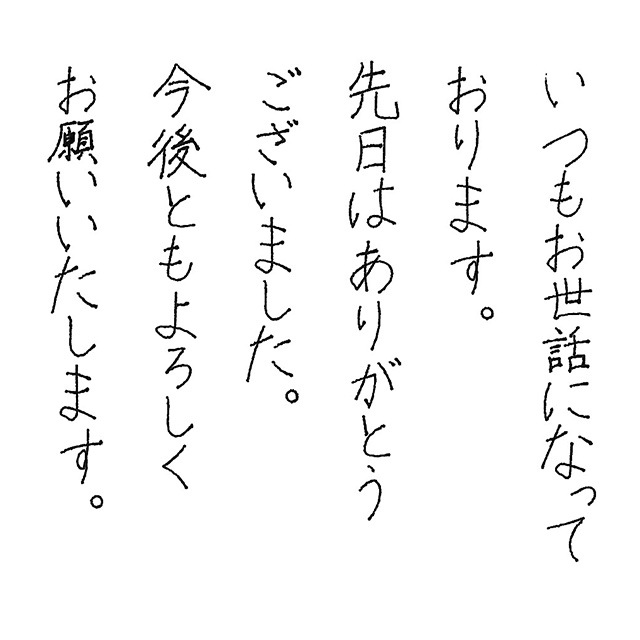 いつもお世話になって
おります。
先日はありがとう
ございました。
今後ともよろしく
お願いいたします。